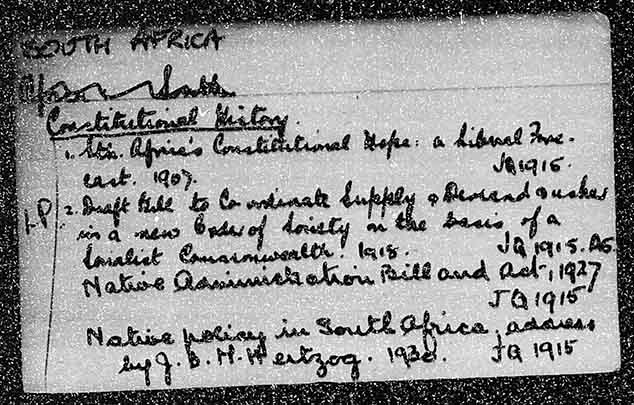 SOUTH AFRICA
South
Constitutional History.
1. Sth. Africa's Constitutional Hope: a Liberal Fore-
cast. 1907. JQ 1915.
LP 2. Draft Bill to Co-ordinate Supply & Demand
in a new Order of Society on the basis of a
Socialist Commonwealth. 1918. JQ 1915. A5.
Native Administration Bill and Act, 1927
JQ 1915
Native policy in South Africa, address
by J. B. M. Hertzog. JQ 1915